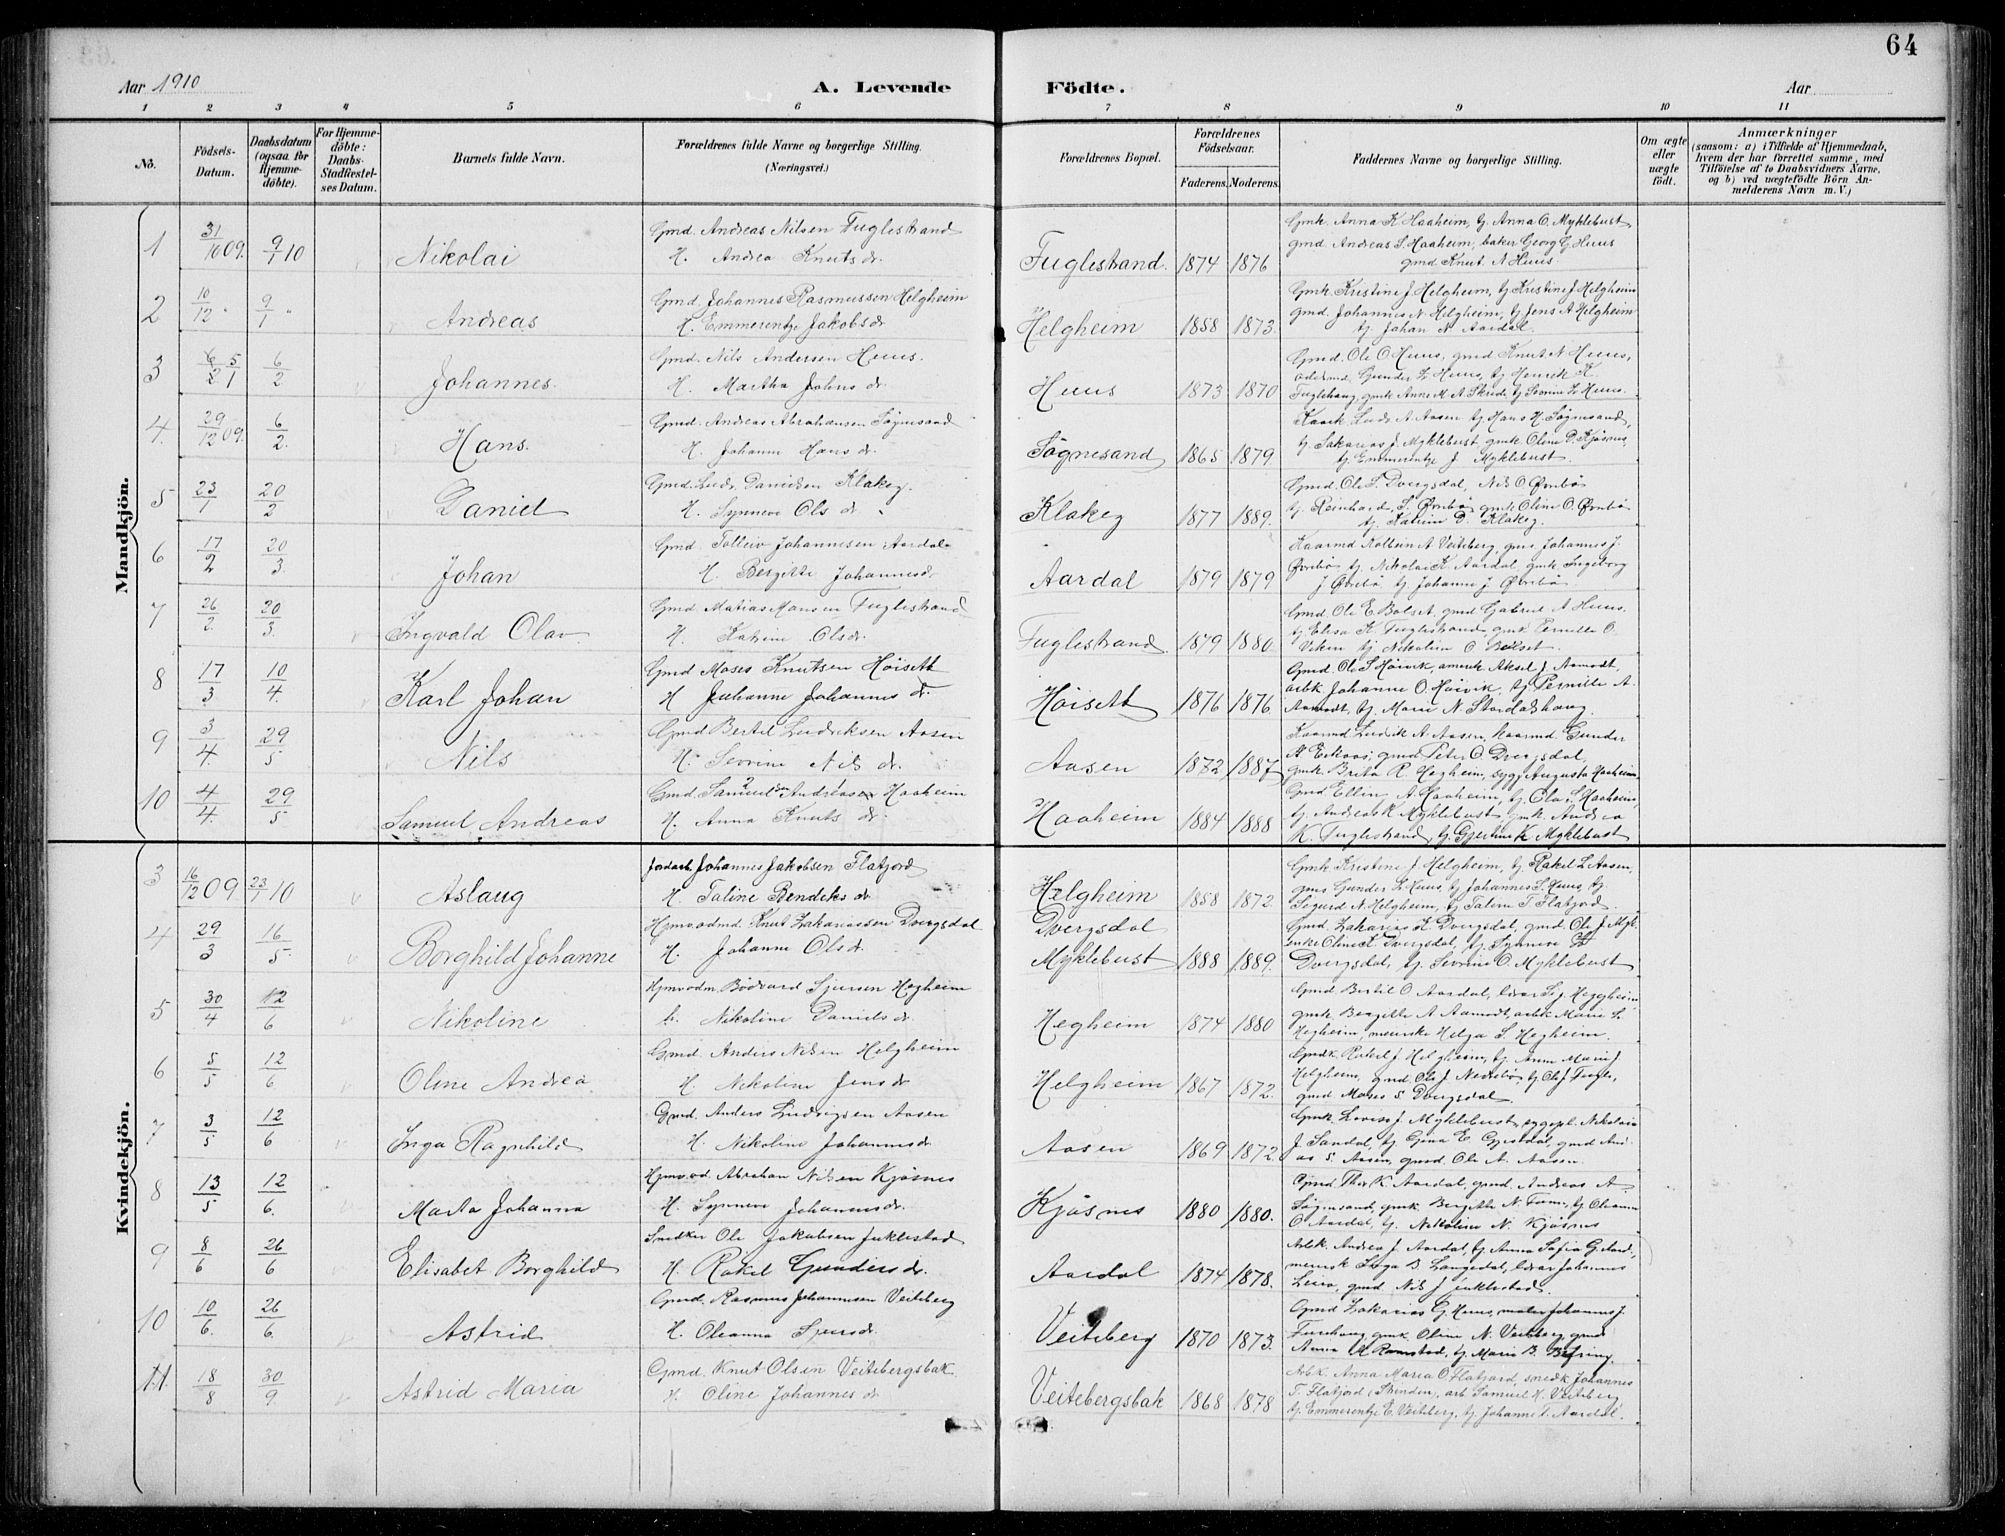 64
Aar 1910
A. Levende Födte.
Aar
1 2 3 4 5 6 7 8 9 10 11
No.
Födsels-Datum.
Daabsdatum (ogsaa for Hjemme-döbte).
For Hjemme-döbte: Daabs-Stadfæstel-ses Datum.
Barnets fulde Navn.
Forældrenes fulde Navne og borgerlige Stilling. (Næringsvei.)
Forældrenes Bopæl.
Forældrenes Födselsaar.
Faderens. Moderens.
Faddernes Navne og borgerlige Stilling.
Om ægte eller uægte födt.
Anmærkninger (saasom: a) i Tilfælde af Hjemmedaab, hvem der har forrettet samme, med Tilföielse af to Daabsvidners Navne, og b) ved uægtefödte Börn An-melderens Navn m. V.)
Mandkjön.
1 31/10 09. 9/1 10 Nikolai Gmd. Andreas Nilsen Fuglestrand
H. Andrea Knutsdr. Fuglestrand. 1874 1876
Gmk. Anna K. Haaheim, tj. Anna O. Myklebust
gmd Andreas S. Haaheim, baker Georg G. Huus
gmd Knut N Huus.
2 10/12 " 9/1 " Andreas Gmd. Johannes Rasmussen Helgheim
H. Emmerentze Jakobsdr Helgheim 1858 1873.
Gmk. Kristine J. Helgheim, tj Kristine J Helgheim
gmd. Johannes N. Helgheim, tj Jens A Helgheim
tj. Johan N. Aardal.
3 5/1 6/2 Johannes. Gmd. Nils Andersen Huus.
H. Martha Johns dr. Huus 1873 1870
Gmd. Ole O Huus, gmd Knut N Huus,
Gunder L. Huus, tj Henrik K.
Fuglehaug, gmk Anne M. A. Skrede, tj Sevrine L. Huus.
4. 29/12 09. 6/2. Hans. Gmd. Andreas Abrahamsen Søgnesand
H. Johanne Hans dr. Søgnesand 1865 1879
Ludv. A. Aasen tj Hans H. Søgnesand,
tj. Sakarias J. Myklebust, gmk. Oline D. Kjøsnes,
tj. Emmerentze J Myklebust.
5 23/1 20/2 Daniel Gmd. Ludv. Danielsen Klakeg.
H. Synneve Ols dr. Klakeg 1877 1889.
Gmd. Ole S. Dvergsdal, Nils O Øvrebø
tj. Reinhard S. Øvrebø gmk Oline O. Øvrebø
tj. Katrine D. Klakeg.
6 17/2 20/3. Johan Gmd. Tolleiv Johannesen Aardal
H. Bergitte Johannesdr Aardal 1879 1879
Kaarmd Kolbein A Veiteberg, gmd. Johannes J.
Øvrebø tj. Nikolai K. Aardal gmk Ingeborg
J Øvrebø tj. Johanne J. Øvrebø
7 26/2. 20/3. Ingvald Olav Gmd Matias Monsen Fuglestrand
H. Katrine Olsdr. Fuglestrand. 1879 1880.
Gmd. Ole E. Bolset, gmd Gabriel A Huus.
tj Elisa K. Fuglestrand gmk Pernille O.
Viken tj Nikoline O Bolset.
8 17/3 10/4. Karl Johan Gmd Moses Knutsen Høisett
H Johanne Johannes dr. Høisett 1876 1876
Gmd Ole S Høivik, Aksel J. Aamodt,
arbk. Johanne O. Høivik, tj. Pernille A.
Aamodt, tj. Marie N. Stardalshaug.
9 3/4. 29/5 Nils Gmd Bertil Ludviksen Aasen
H. Sevrine Nils dr. Aasen 1872 1887
Kaarmd Ludvik A. Aasen, kaarmd Gunder
A. Eikaas, gmd Peter O Dvergsdal,
gmk. Brita R. Hegheim, sygpl Augusta Haaheim
10 4/4. 29/5 Samuel Andreas Gmd. Samuel Andreasen Haaheim
H. Anna Knuts dr. Haaheim 1884 1888
Gmd Elling A Haaheim, tj. Ola S. Haaheim,
tj. Andreas K Myklebust Gmk. Andrea
K. Fuglestrand, tj. Gjertine K. Myklebust
Kvindekjön.
3 16/12 09 23/1 10 Aslaug Jordarb. Johannes Jakobsen Flatjord
H. Taline Bendiks dr. Helgheim 1858 1872.
Gmk. Kristine J. Helgheim, tj Rakel L. Aasen,
gmd Gunder L. Huus, tj Johannes S. Huus, tj.
Sigurd N. Helgheim, tj Taline T. Flatjord.
4 29/3 16/5 Borghild Johanne Hjmvodmd. Knut Zakariassen Dvergsdal
H. Johanne Olsdr. Dvergsdal Myklebust 1888 1889.
Gmd. Zakarias K. Dvergsdal, gmd. Ole J. Mykl.
enke Oline K Dvergsdal, tj. Synneve
Dvergsdal, tj. Sevrine O. Myklebust
5 30/4 12/6 Nikoline Hjmvodm. Bødvard Sjursen Hegheim
h. Nikoline Daniels dr. Hegheim 1874 1880
Gmd. Bertil O. Aardal, lærer Sig. Heggheim
gmk. Bergitte A Aamodt, arbk Marie L.
Hegheim, meierske Helga S. Hegheim.
6 5/5 12/6 Oline Andrea Gmd. Anders Nilsen Helgheim
H Nikoline Jensdr Helgheim 1867 1872.
Gmdk. Rakel J. Helgheim, tj. Anne Marie J.
Helgheim, gmd. Ole J. Nedrebø tj Ole J. Fugle,
gmd Moses S. Dvergsdal.
7 3/5 12/6 Inga Ragnhild Gmd. Anders Ludvigsen Aasen
H. Nikoline Johannesdr. Aasen 1869 1872.
Gmk. Lovise J. Myklebust, sygepl. Nikolaia
J. Sandal, tj. Gina E. Gjesdal, gmd And-
as S. Aasen, gmd. Ole A. Aasen.
8 13/5 12/6. Marta Johanna Hjmvod. Abraham Nilsen Kjøsnes
H. Synneve Johannesdr. Kjøsnes 1880 1880.
Gmd. Thor K. Aardal, gmd. Andreas A.
Søgnesand, gmk. Bergitte N. , tj. Oleanna
O. Aardal, tj. Nikoline N. Kjøsnes
9 8/6 26/6 Elisabet Borghild Snedker Ole Jakobsen Juklestad
H. Rakel Gundersdr. Aardal 1874 1878.
Arbk. Andrea J. Aardal, tj. Anna Sofia G. Aard.,
meiersk Inga B. Langedal, lærer Johannes
Leira, gmd. Nils J Juklestad.
10 10/6. 26/6. Astrid Gmd. Rasmus Johannesen Veiteberg
H. Oleanna Sjursdr. Veiteberg 1870 1873.
Gmd Zakarias G. Huus, maler Johannes J.
Furehaug, gmk. Oline N. Veiteberg, gmd
Anna M. Ramstad, tj. Marie B. Befring.
11 18/8 30/9 Astrid Maria Gmd. Knut Olsen Veitebergsbak
H. Oline Johannes dr. Veitebergsbak 1868 1878
Arbk. Anna Maria O. Flatjord, smedk Johannes
T. Flatjord (Stenden), arb Samuel H. Veiteberg
tj. Emmerentze E. Veiteberg, tj. Johanne T. Aardal.